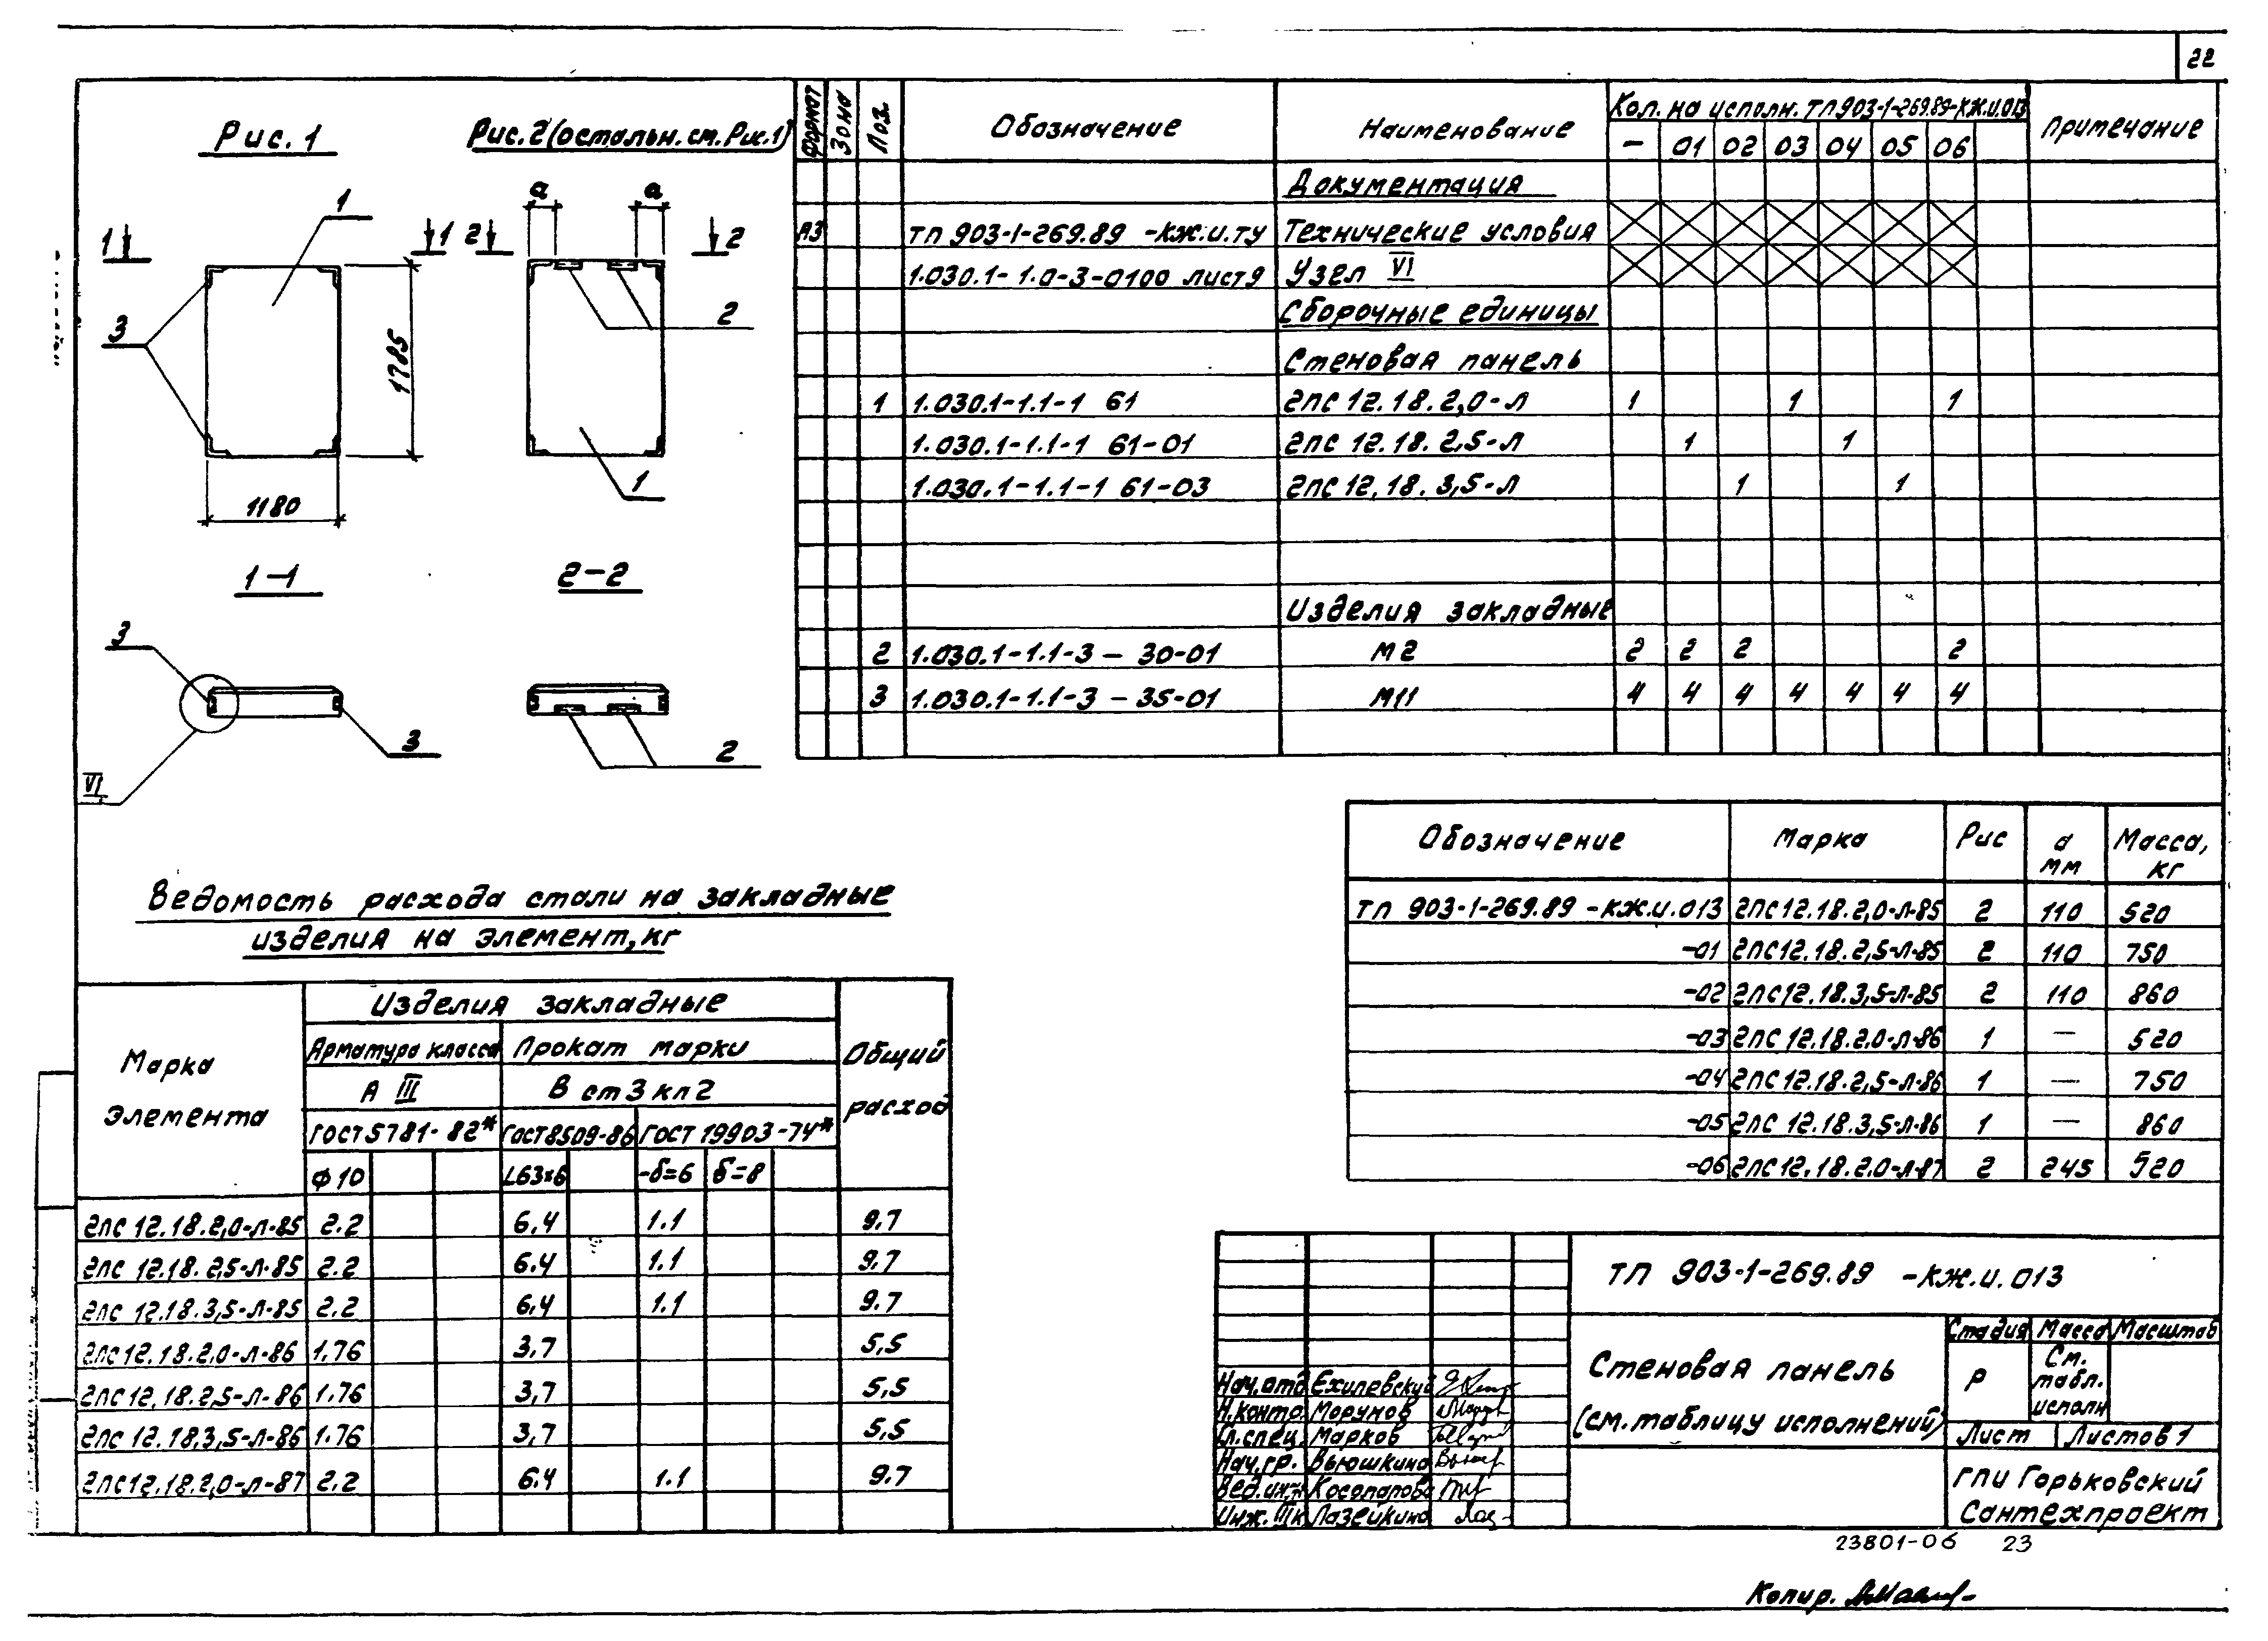 22
Рис. 1
Рис. 2 (остальн. см. Рис. 1)
1
1
1
3
1785
1180
а
а
2
2
2
1
1-1
2-2
3
3
VI
2
Формат Зона Поз. Обозначение Наименование Кол. на исполн. ТП 903-1-269.89-КЖ.И.013 Примечание
— 01 02 03 04 05 06
Документация
А3 ТП 903-1-269.89 -КЖ.И.ТУ Технические условия
1.030.1-1.0-3-0100 лист 9 Узел VI
Сборочные единицы
Стеновая панель
1 1.030.1-1.1-1 61 2ПС 12.18.2,0-Л 1 1 1
1.030.1-1.1-1 61-01 2ПС 12.18.2,5-Л 1 1
1.030.1-1.1-1 61-03 2ПС 12.18.3,5-Л 1 1
Изделия закладные
2 1.030.1-1.1-3 – 30-01 М2 2 2 2 2
3 1.030.1-1.1-3 – 35-01 М11 4 4 4 4 4 4 4
Обозначение Марка Рис а мм Масса, кг
ТП 903-1-269.89 -КЖ.И.013 2ПС12.18.2,0-Л-85 2 110 520
-01 2ПС12.18.2,5-Л-85 2 110 750
-02 2ПС12.18.3,5-Л-85 2 110 860
-03 2ПС 12.18.2.0-Л-86 1 — 520
-04 2ПС 12.18.2,5-Л-86 1 — 750
-05 2ПС 12.18.3,5-Л-86 1 — 860
-06 2ПС12.18.2.0-Л-87 2 245 520
Ведомость расхода стали на закладные
изделия на элемент, кг
Марка элемента Изделия закладные Общий расход
Арматура класса Прокат марки
А III В ст 3 кп 2
ГОСТ 5781-82* ГОСТ 8509-86 ГОСТ 19903-74*
ф 10 L63х6 -δ=6 δ=8
2ПС 12.18.2,0-Л-85 2.2 6.4 1.1 9.7
2ПС 12.18.2,5-Л-85 2.2 6.4 1.1 9.7
2ПС 12.18.3,5-Л-85 2.2 6.4 1.1 9.7
2ПС 12.18.2,0-Л-86 1.76 3,7 5,5
2ПС 12.18.2,5-Л-86 1.76 3,7 5,5
2ПС 12.18.3,5-Л-86 1.76 3,7 5,5
2ПС12.18.2,0-Л-87 2.2 6.4 1.1 9.7
ТП 903-1-269.89 -КЖ.И.013
Стеновая панель
(см. таблицу исполнений)
Стадия Масса Масштаб
Р См. табл. исполн
Лист Листов 1
ГПИ Горьковский
Сантехпроект
Нач. отд Ехилевский
Н. контр. Морунов
Гл. спец. Марков
Нач. гр. Вьюшкина
Вед. инж
Инж. IIIк Лазейкина
23801-06 23
Копир.